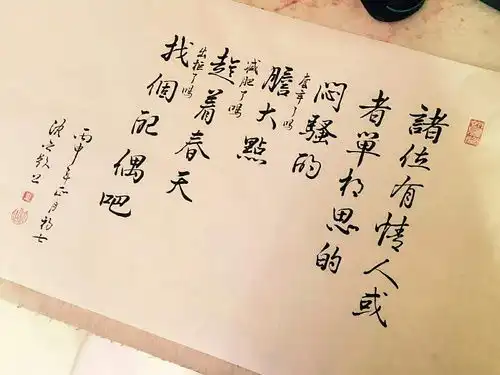 諸位有情人或
者單相思的
悶騷的
了嗎
膽大點
减肥了嗎
趁着春天
出柜了嗎
找個配偶吧
丙申年正月初七